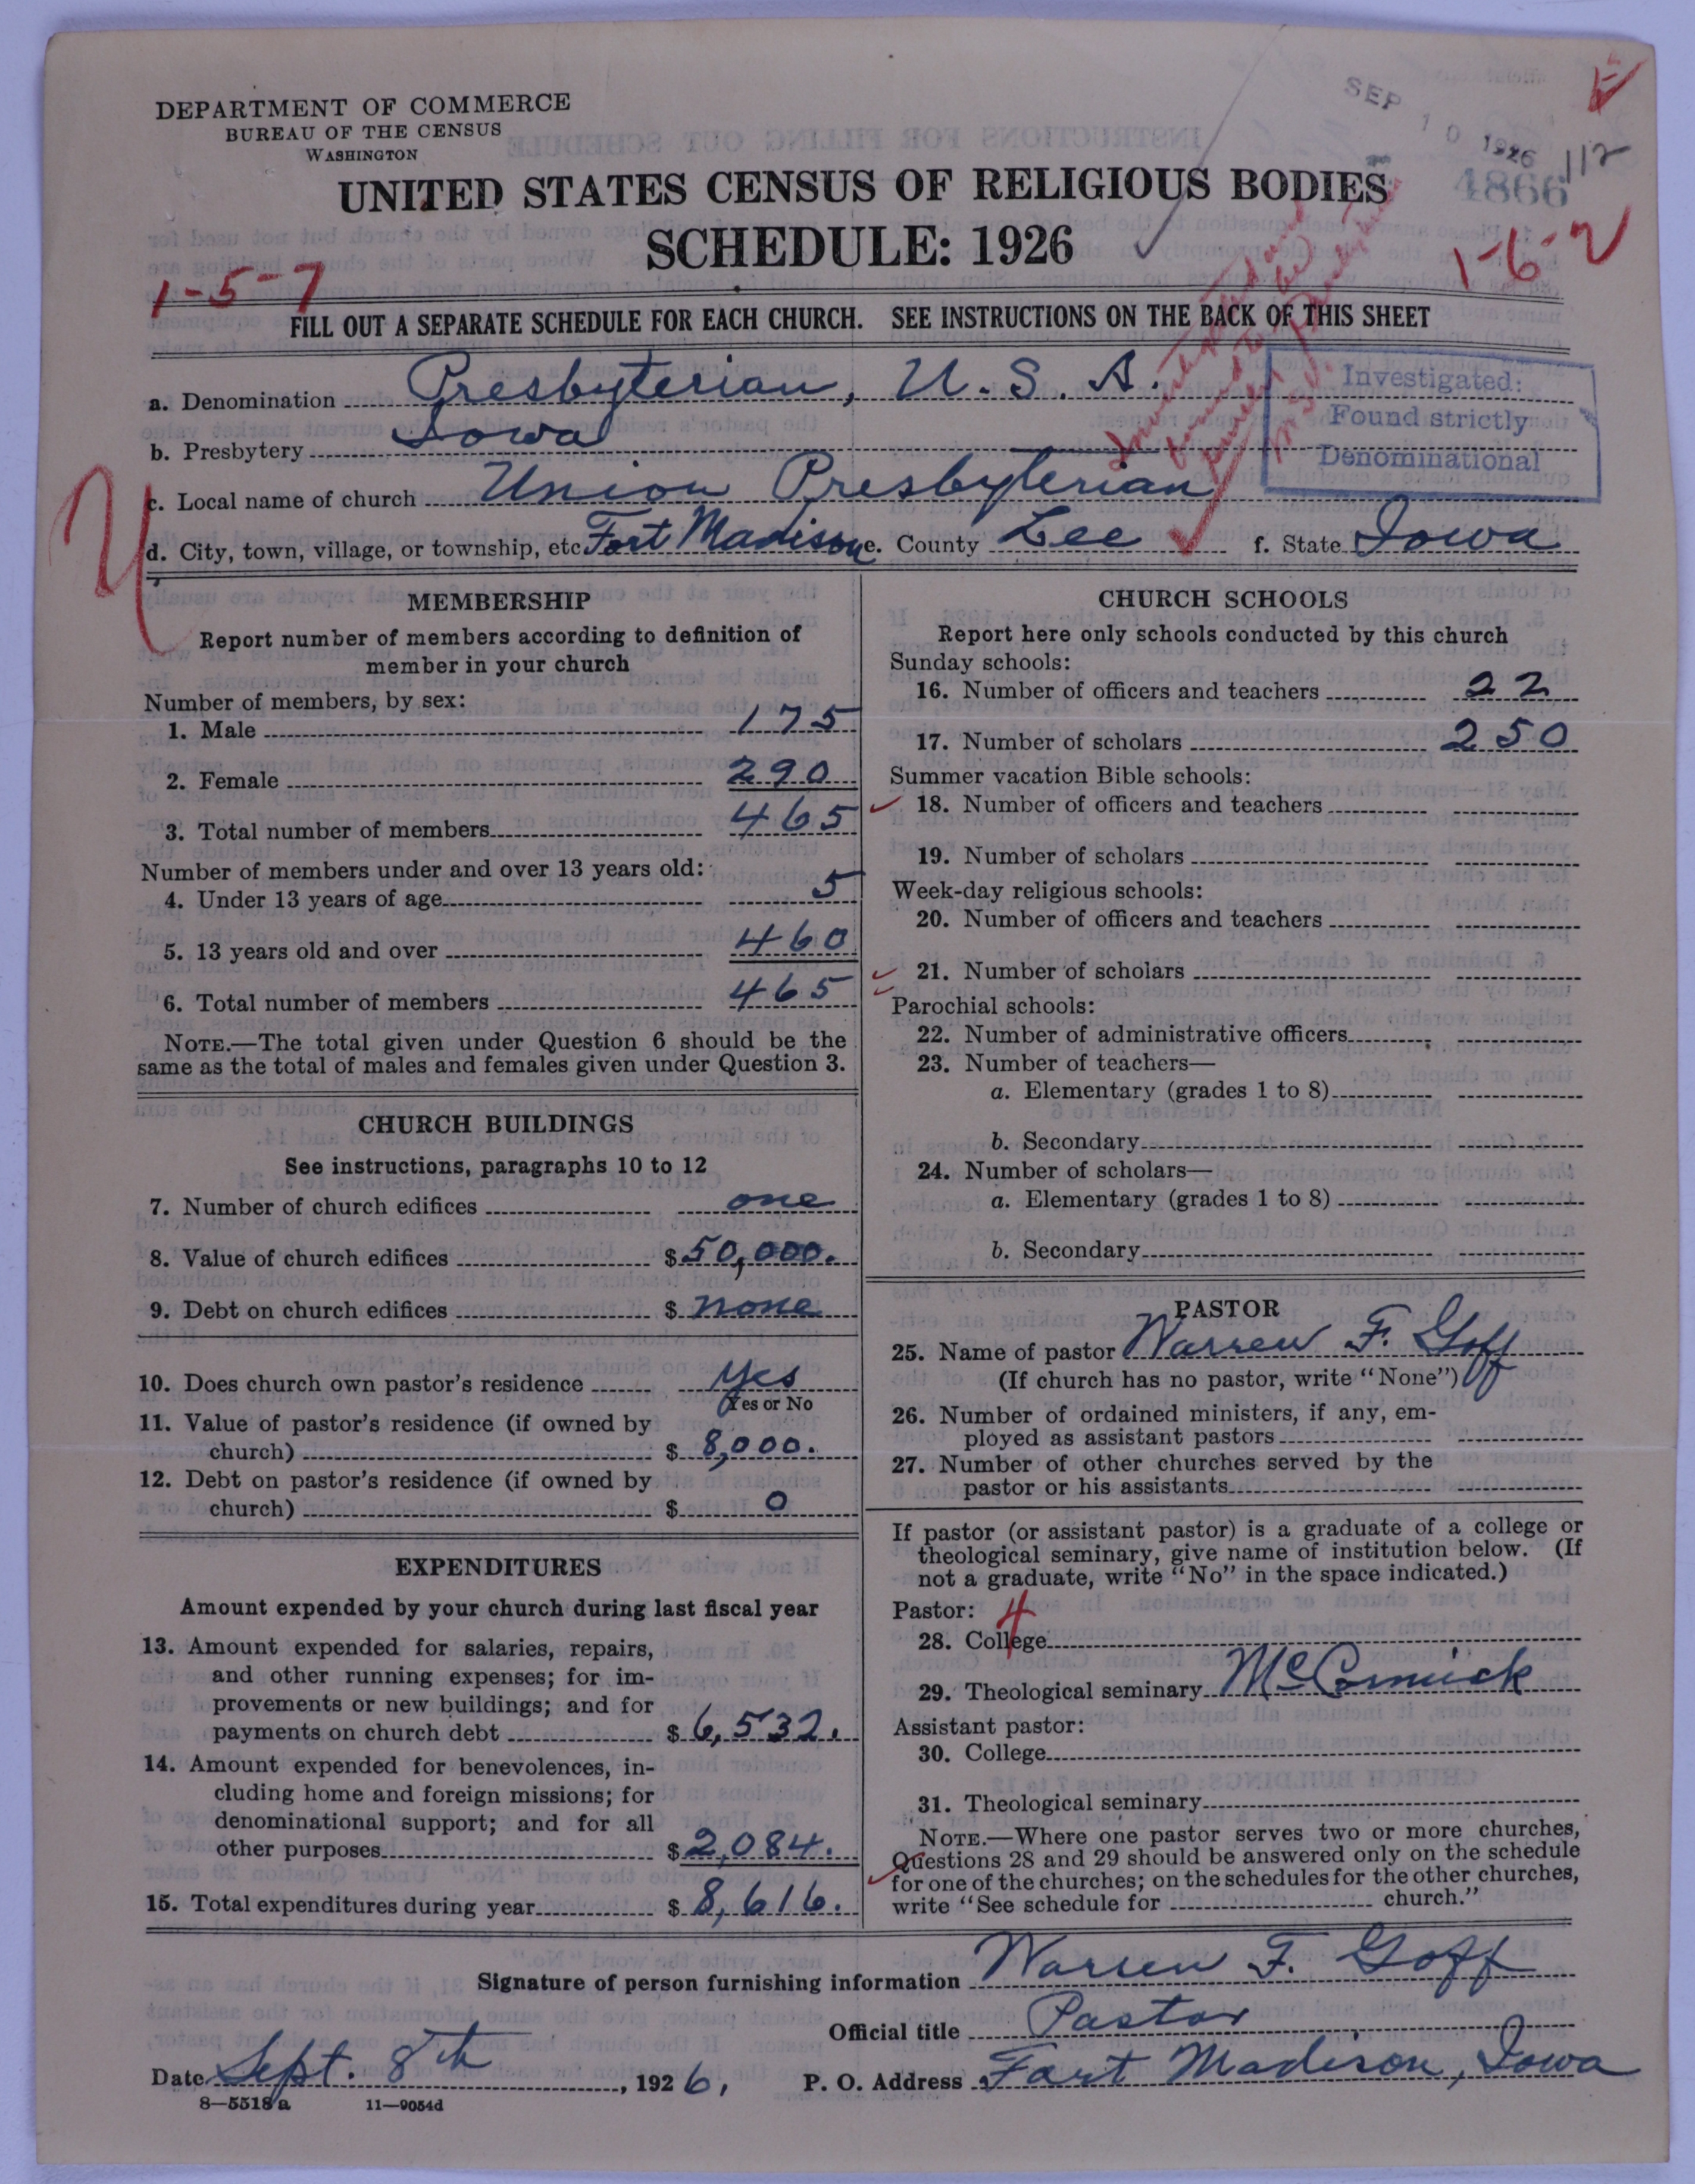 DEPARTMENT OF COMMERCE
BUREAU OF THE CENSUS
WASHINGTON
SEP 10 1926
112
4866
UNITED STATES CENSUS OF RELIGIOUS BODIES
SCHEDULE: 1926
1-5-7
1-6-2
FILL OUT A SEPARATE SCHEDULE FOR EACH CHURCH. SEE INSTRUCTIONS ON THE BACK OF THIS SHEET
a. Denomination Presbyterian, U. S. A.
b. Presbytery Iowa
Investigated:
Found strictly
Denominational
c. Local name of church Union Presbyterian
d. City, town, village, or township, etc Fort Madison e. County Lee f. State Iowa
MEMBERSHIP
Report number of members according to definition of
member in your church
Number of members, by sex:
1. Male 175
2. Female 290
3. Total number of members 465
Number of members under and over 13 years old:
4. Under 13 years of age 5
5. 13 years old and over 460
6. Total number of members 465
NOTE.—The total given under Question 6 should be the
same as the total of males and females given under Question 3.
CHURCH BUILDINGS
See instructions, paragraphs 10 to 12
7. Number of church edifices one
8. Value of church edifices $50,000.
9. Debt on church edifices $ none
10. Does church own pastor's residence Yes
Yes or No
11. Value of pastor's residence (if owned by
church) $ 8,000.
12. Debt on pastor's residence (if owned by
church) $ 0
EXPENDITURES
Amount expended by your church during last fiscal year
13. Amount expended for salaries, repairs,
and other running expenses; for im-
provements or new buildings; and for
payments on church debt $ 6,532.
14. Amount expended for benevolences, in-
cluding home and foreign missions; for
denominational support; and for all
other purposes $ 2,084.
15. Total expenditures during year $ 8,616.
CHURCH SCHOOLS
Report here only schools conducted by this church
Sunday schools:
16. Number of officers and teachers 22
17. Number of scholars 250
Summer vacation Bible schools:
18. Number of officers and teachers
19. Number of scholars
Week-day religious schools:
20. Number of officers and teachers
21. Number of scholars
Parochial schools:
22. Number of administrative officers
23. Number of teachers—
a. Elementary (grades 1 to 8)
b. Secondary
24. Number of scholars—
a. Elementary (grades 1 to 8)
b. Secondary
PASTOR
25. Name of pastor Warren F. Goff
(If church has no pastor, write "None")
26. Number of ordained ministers, if any, em-
ployed as assistant pastors
27. Number of other churches served by the
pastor or his assistants
If pastor (or assistant pastor) is a graduate of a college or
theological seminary, give name of institution below. (If
not a graduate, write "No" in the space indicated.)
Pastor: 4
28. College
29. Theological seminary McCormick
Assistant pastor:
30. College
31. Theological seminary
NOTE.—Where one pastor serves two or more churches,
Questions 28 and 29 should be answered only on the schedule
for one of the churches; on the schedules for the other churches,
write "See schedule for church."
Signature of person furnishing information Warren F. Goff
Official title Pastor
Date Sept. 8th, 1926, P. O. Address Fort Madison, Iowa
8—5518 a 11—9054d